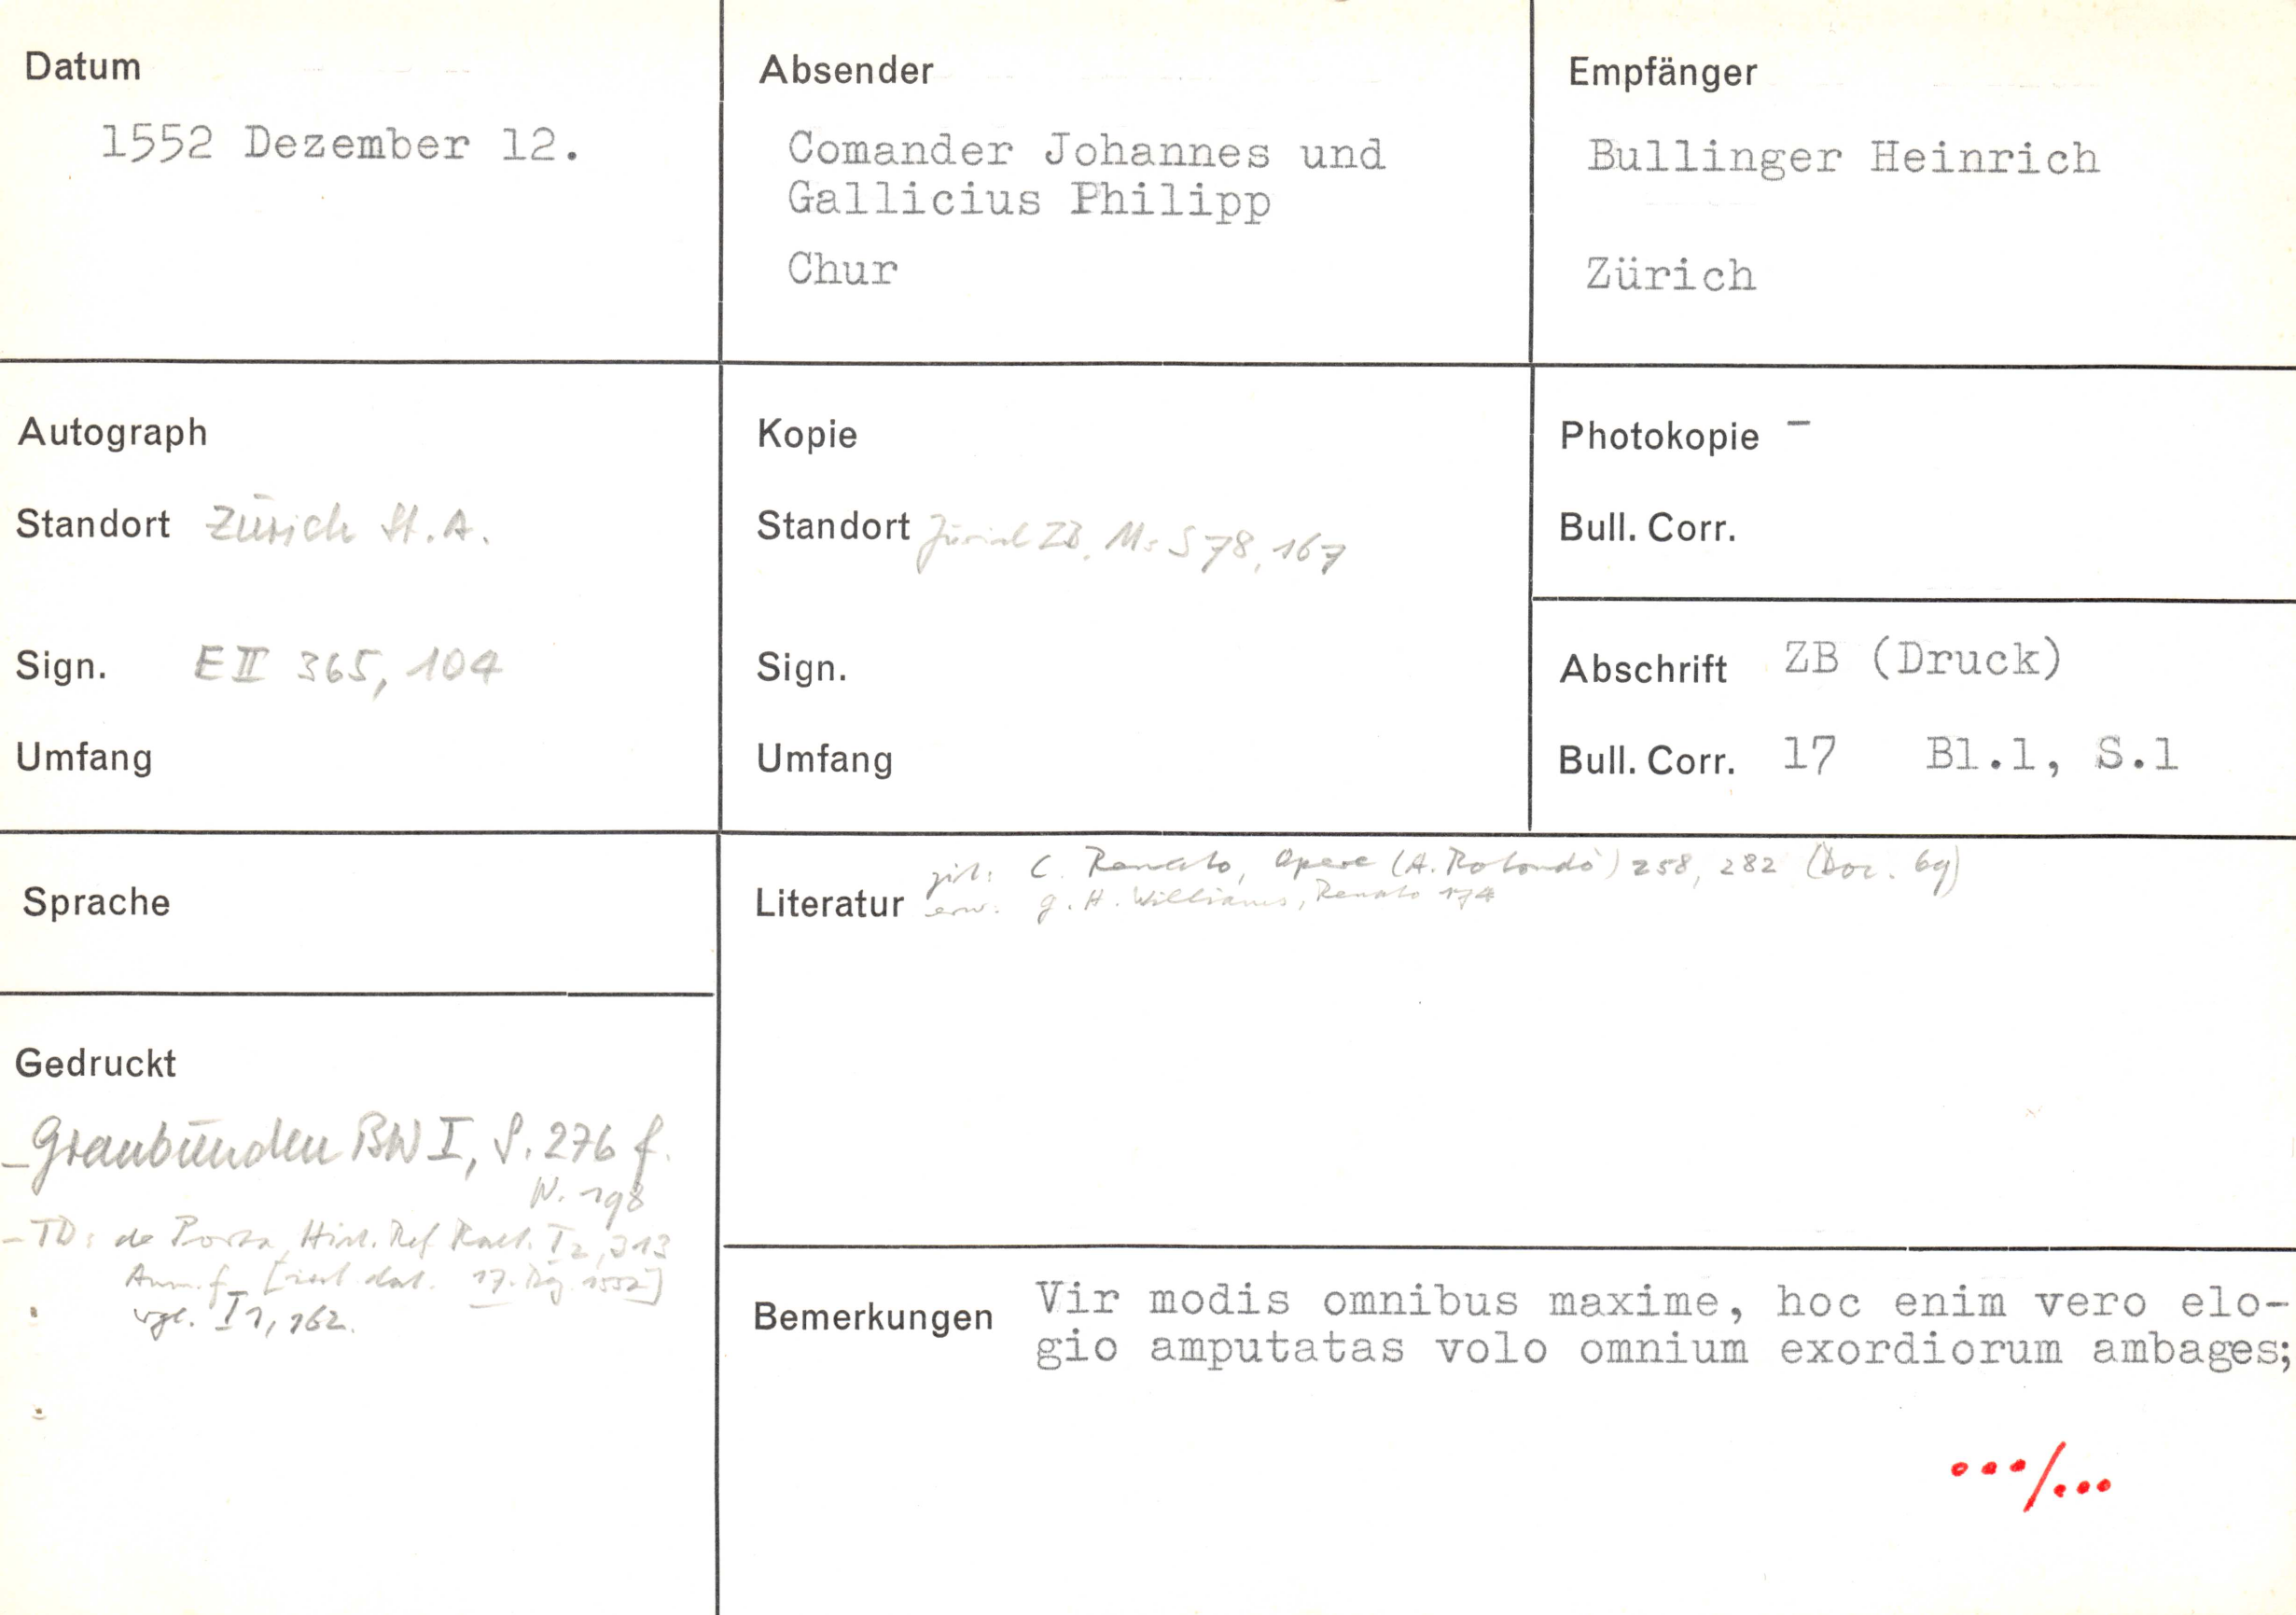 Datum
1552 Dezember 12.
Absender
Comander Johannes und
Gallicius Philipp
Chur
Empfänger
Bullinger Heinrich
Zürich
Autograph
Standort Zürich St.A.
Sign. E II 365, 104
Umfang
Kopie
Standort Zürich ZB, Ms S 78, 167
Sign.
Umfang
Photokopie –
Bull. Corr.
Abschrift ZB (Druck)
Bull. Corr. 17 Bl.1, S.1
Sprache
Literatur zit: C. Renato, Opere (A. Rotondò) 258, 282 (Doc. 69)
erw. G. H. Williams, Renato 174
Gedruckt
- Graubünden BW I, S. 276 f.
N. 198
- TD: de Porta, Hist. Ref. Raet. I 2, 213
Anm. f [dat. 17. Dez. 1552]
vgl. I 1, 162.
Bemerkungen Vir modis omnibus maxime, hoc enim vero elo-
gio amputatas volo omnium exordiorum ambages;
.../...